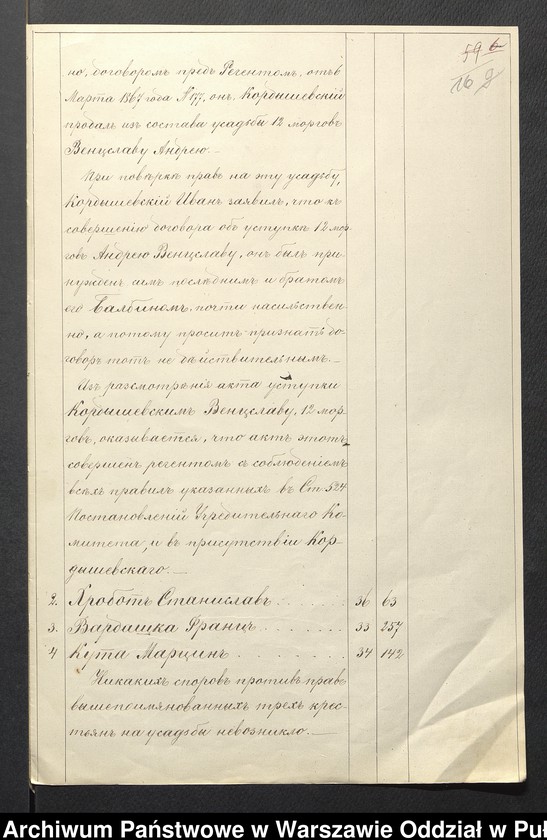 59 6
16 9
но, договоромъ предъ Регентомъ, отъ 6
Марта 1867 года № 177, онъ Кордышевскій
продалъ изъ состава усадьбы 12 морговъ
Венцславу Андрею.—
При повѣркѣ правъ на эту усадьбу,
Кордышевскій Иванъ заявилъ, что къ
совершенію договора объ уступкѣ 12 мор-
говъ Андрею Венцславу, онъ былъ при-
нужденъ симъ послѣднимъ и братомъ
его Балбиномъ, почти насильствен-
но, а потому проситъ признать до-
говоръ тотъ не дѣйствительнымъ.—
Изъ разсмотрѣнія акта уступки
Кордышевскимъ Венцславу, 12 мор-
говъ, оказывается, что актъ этотъ
совершенъ регентомъ съ соблюденіемъ
всѣхъ правилъ указанныхъ въ Ст. 524
Постановленій Учредительнаго Ко-
митета, и въ присутствіи Кор-
дышевскаго.—
2. Хроботъ Станиславъ . . . . . 36 63
3. Вардашка Францъ . . . . . . 33 257
4 Кута Марцинъ . . . . . . . 34 142
Никакихъ споровъ противъ правъ
вышепоимянованныхъ трехъ крес-
тьянъ на усадьбы невозникло.—
Archiwum Państwowe w Warszawie Oddział w Puł